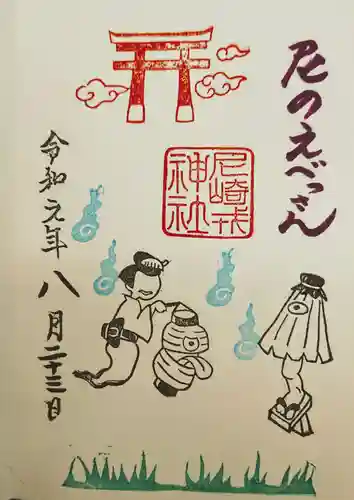 尼のえべっさん
尼崎戎
神社
令和元年八月二十三日